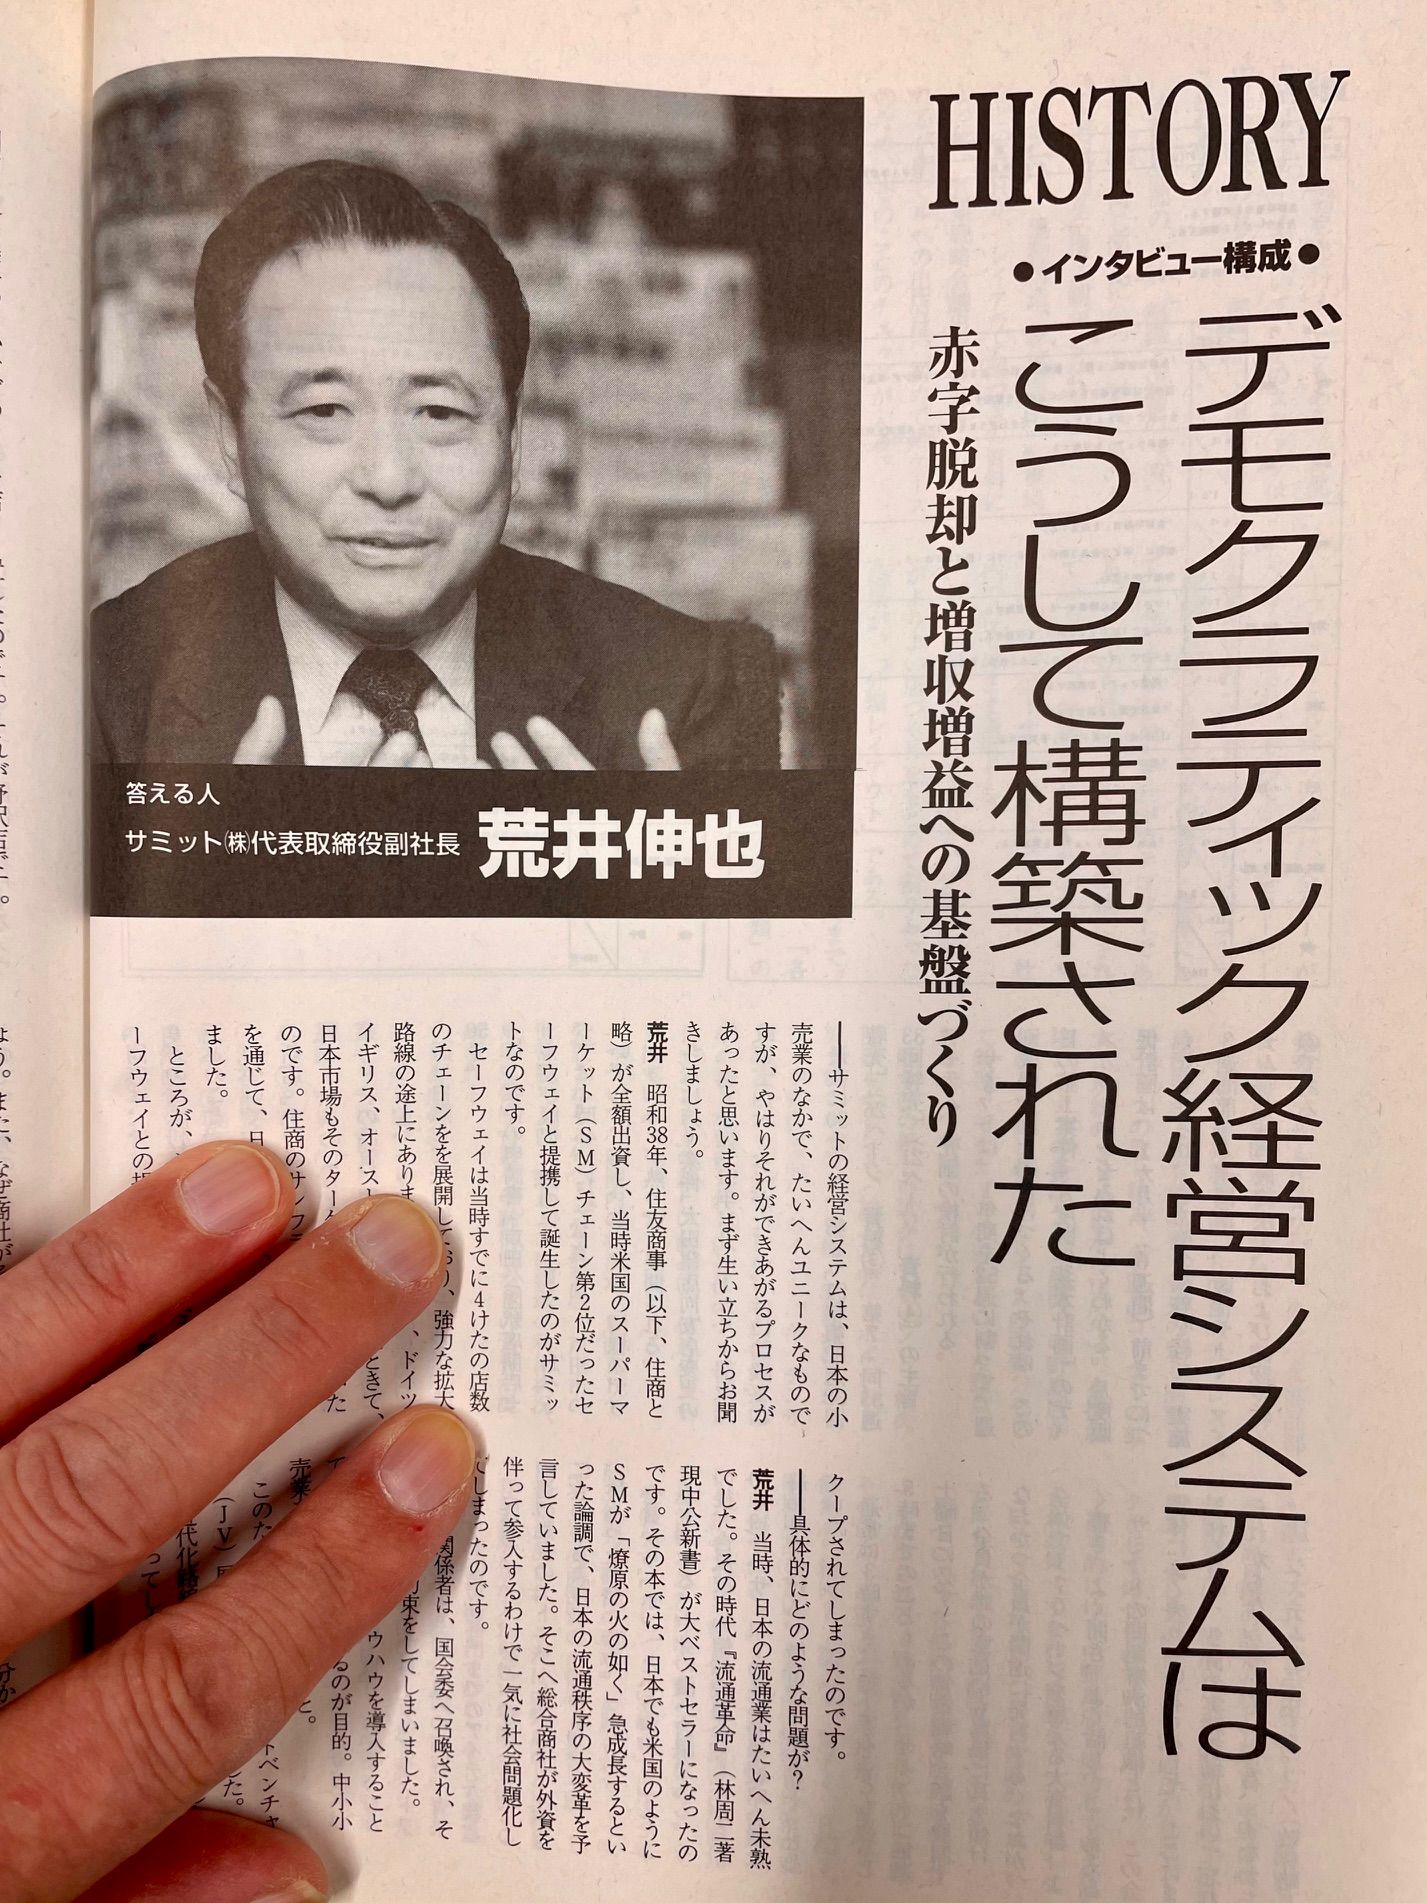 HISTORY
●インタビュー構成●
デモクラティック経営システムは
こうして構築された
赤字脱却と増収増益への基盤づくり
答える人
サミット㈱代表取締役副社長 荒井伸也
――サミットの経営システムは、日本の小
売業のなかで、たいへんユニークなもので
すが、やはりそれができあがるプロセスが
あったと思います。まず生い立ちからお聞
きしましょう。
荒井　昭和38年、住友商事（以下、住商と
略）が全額出資し、当時米国のスーパーマ
ーケット（ＳＭ）チェーン第２位だったセ
ーフウェイと提携して誕生したのがサミッ
トなのです。
　セーフウェイは当時すでに４けたの店数
のチェーンをを展開しており、強力な拡大
路線の途上にありま
、ドイツ
イギリス、オースト
ときて、
日本市場もそのターゲ
た
のです。住商のサンフラ
を通じて、日
ました。
　ところが、
ーフウェイとの提
クープされてしまったのです。
――具体的にどのような問題が？
荒井　当時、日本の流通業はたいへん未熟
でした。その時代『流通革命』（林周二著
現中公新書）が大ベストセラーになったの
です。その本では、日本でも米国のように
ＳＭが「燎原の火の如く」急成長するとい
った論調で、日本の流通秩序の大変革を予
言していました。そこへ総合商社が外資を
伴って参入するわけで一気に社会問題化し
てしまったのです。
関係者は、国会委へ召喚され、そ
束をしてしまいました。
ウハウを導入すること
るのが目的。中小小
売業
と。
　このた
トベンチャ
（ＪＶ）
した。
代化
ってし